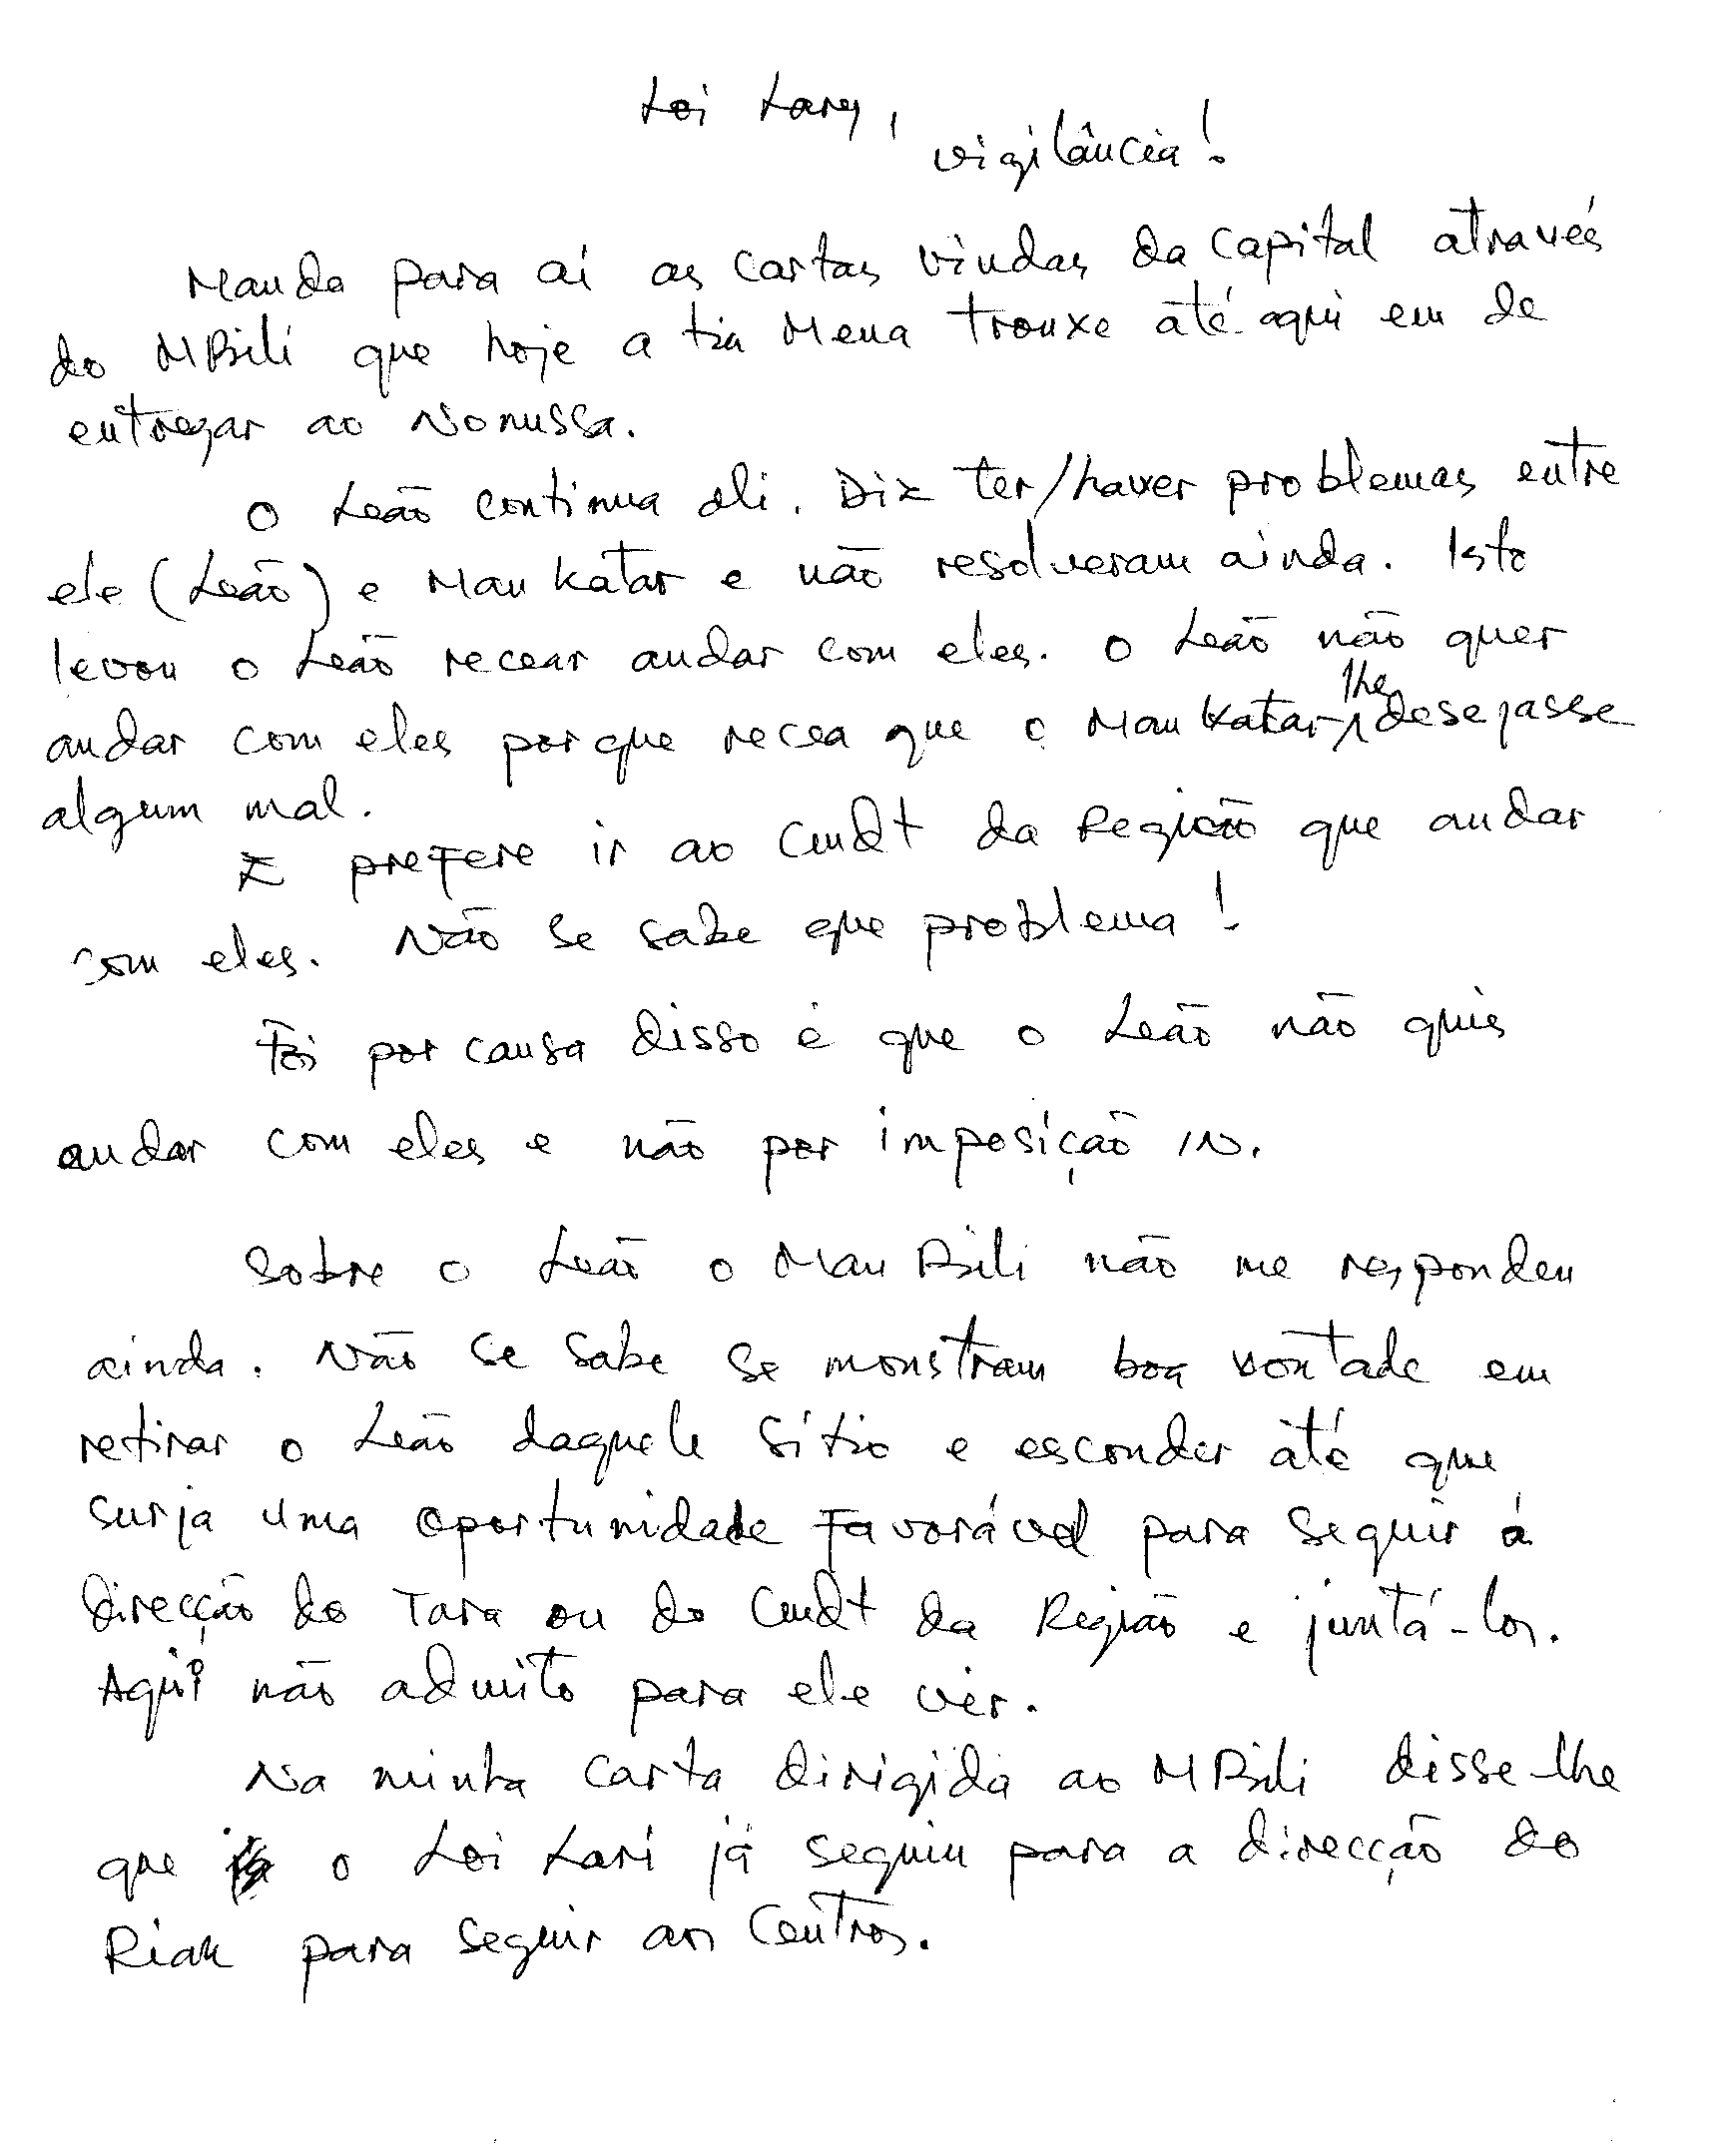 Loi Lary,
vigilância!
Manda para aí as cartas vindas da capital através
do MBili que hoje a tia Mena trouxe até aqui em de
entregar ao Nonussa.
O Leão continua ali. Diz ter/haver problemas entre
ele (Leão) e Mau Katar e não resolveram ainda. Isto
levou o Leão recear andar com eles. O Leão não quer
andar com eles porque recea que o Mau Katar lhe desejasse
algum mal.
E prefere ir ao Cmdt da Região que andar
com eles. Não se sabe que problema!
Foi por causa disso é que o Leão não quis
andar com eles e não por imposição IN.
Sobre o Leão o Mau Bili não me respondeu
ainda. Não se sabe se monstram boa vontade em
retirar o Leão daquele sítio e esconder até que
surja uma oportunidade favorável para seguir à
direcção do Tara ou do Cmdt da Região e juntá-los.
Aqui não admito para ele vir.
Na minha carta dirigida ao MBili disse-lhe
que o Loi Lari já seguiu para a direcção do
Riak para seguir aos Centros.